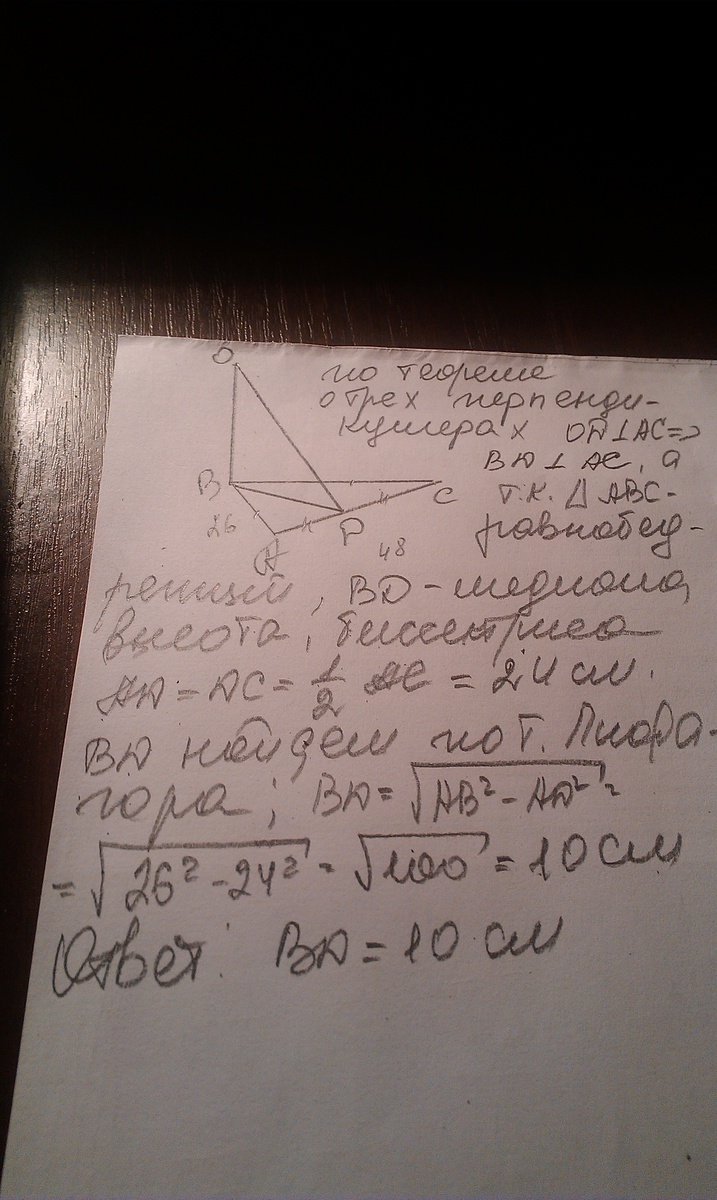 O
по теореме
о трех перпенди-
кулярах OD⊥AC=>
BD⊥AC, а
B
C
т.к. △ABC-
26
A
D
48
равнобед-
ренный, BD-медиана,
высота, биссектриса
AD=DC=1/2 AC = 24 см.
BD найдём по т. Пифа-
гора; BD=√AB²-AD² =
=√26²-24² = √100 = 10 см
Ответ: BD=10 см